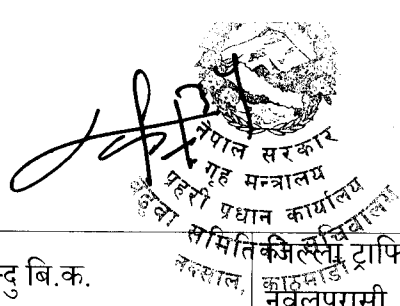 नेपाल सरकार
गृह मन्त्रालय
प्रहरी प्रधान कार्यालय
बढुवा समितिको सचिवालय
नक्साल, काठमाडौं
न्दु बि.क.
जिल्ला ट्राफि
नवलपरासी